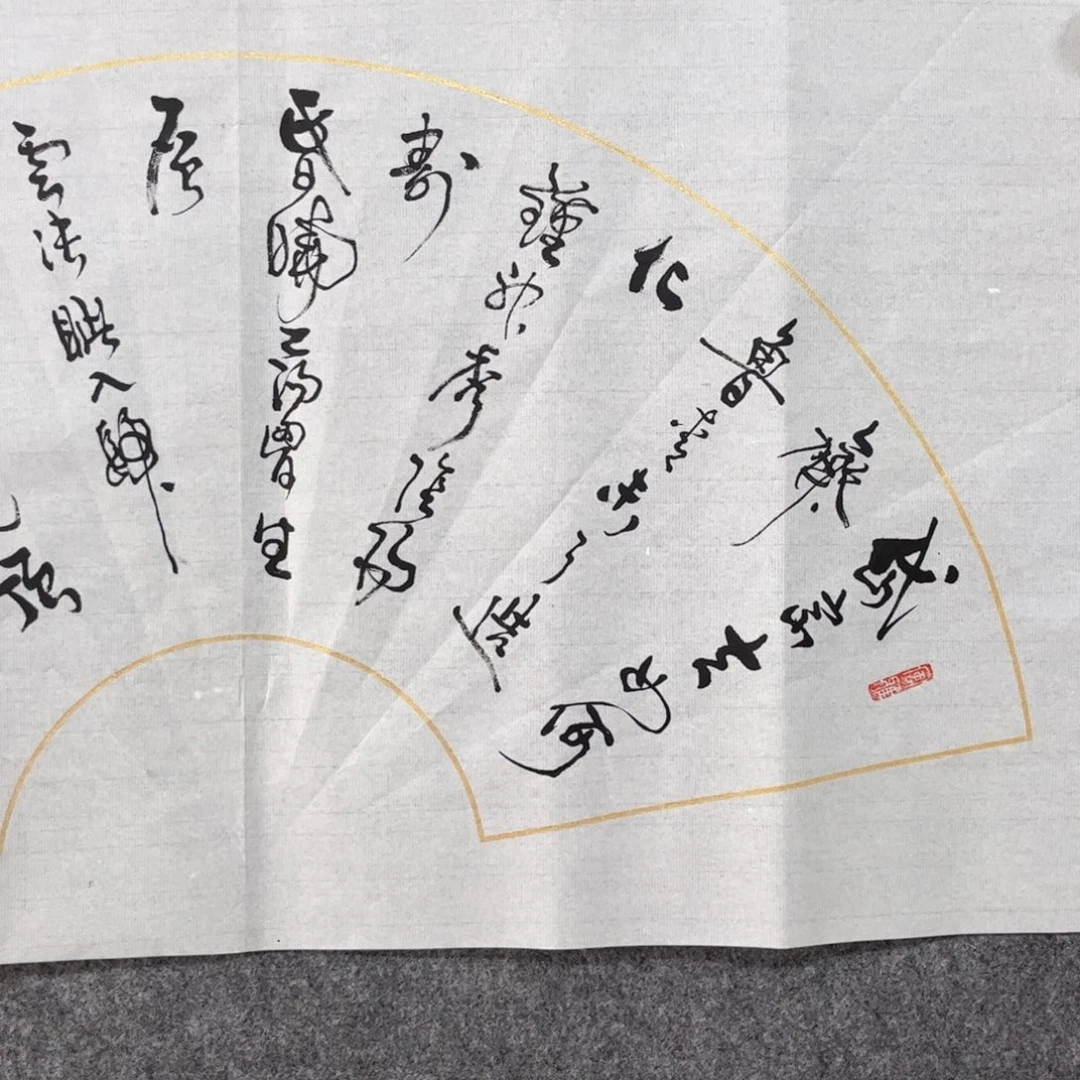 岱宗夫如何
齊
魯青未了造
化
鍾神秀陰陽
割
昏曉蕩胷生
層
雲決眥入歸